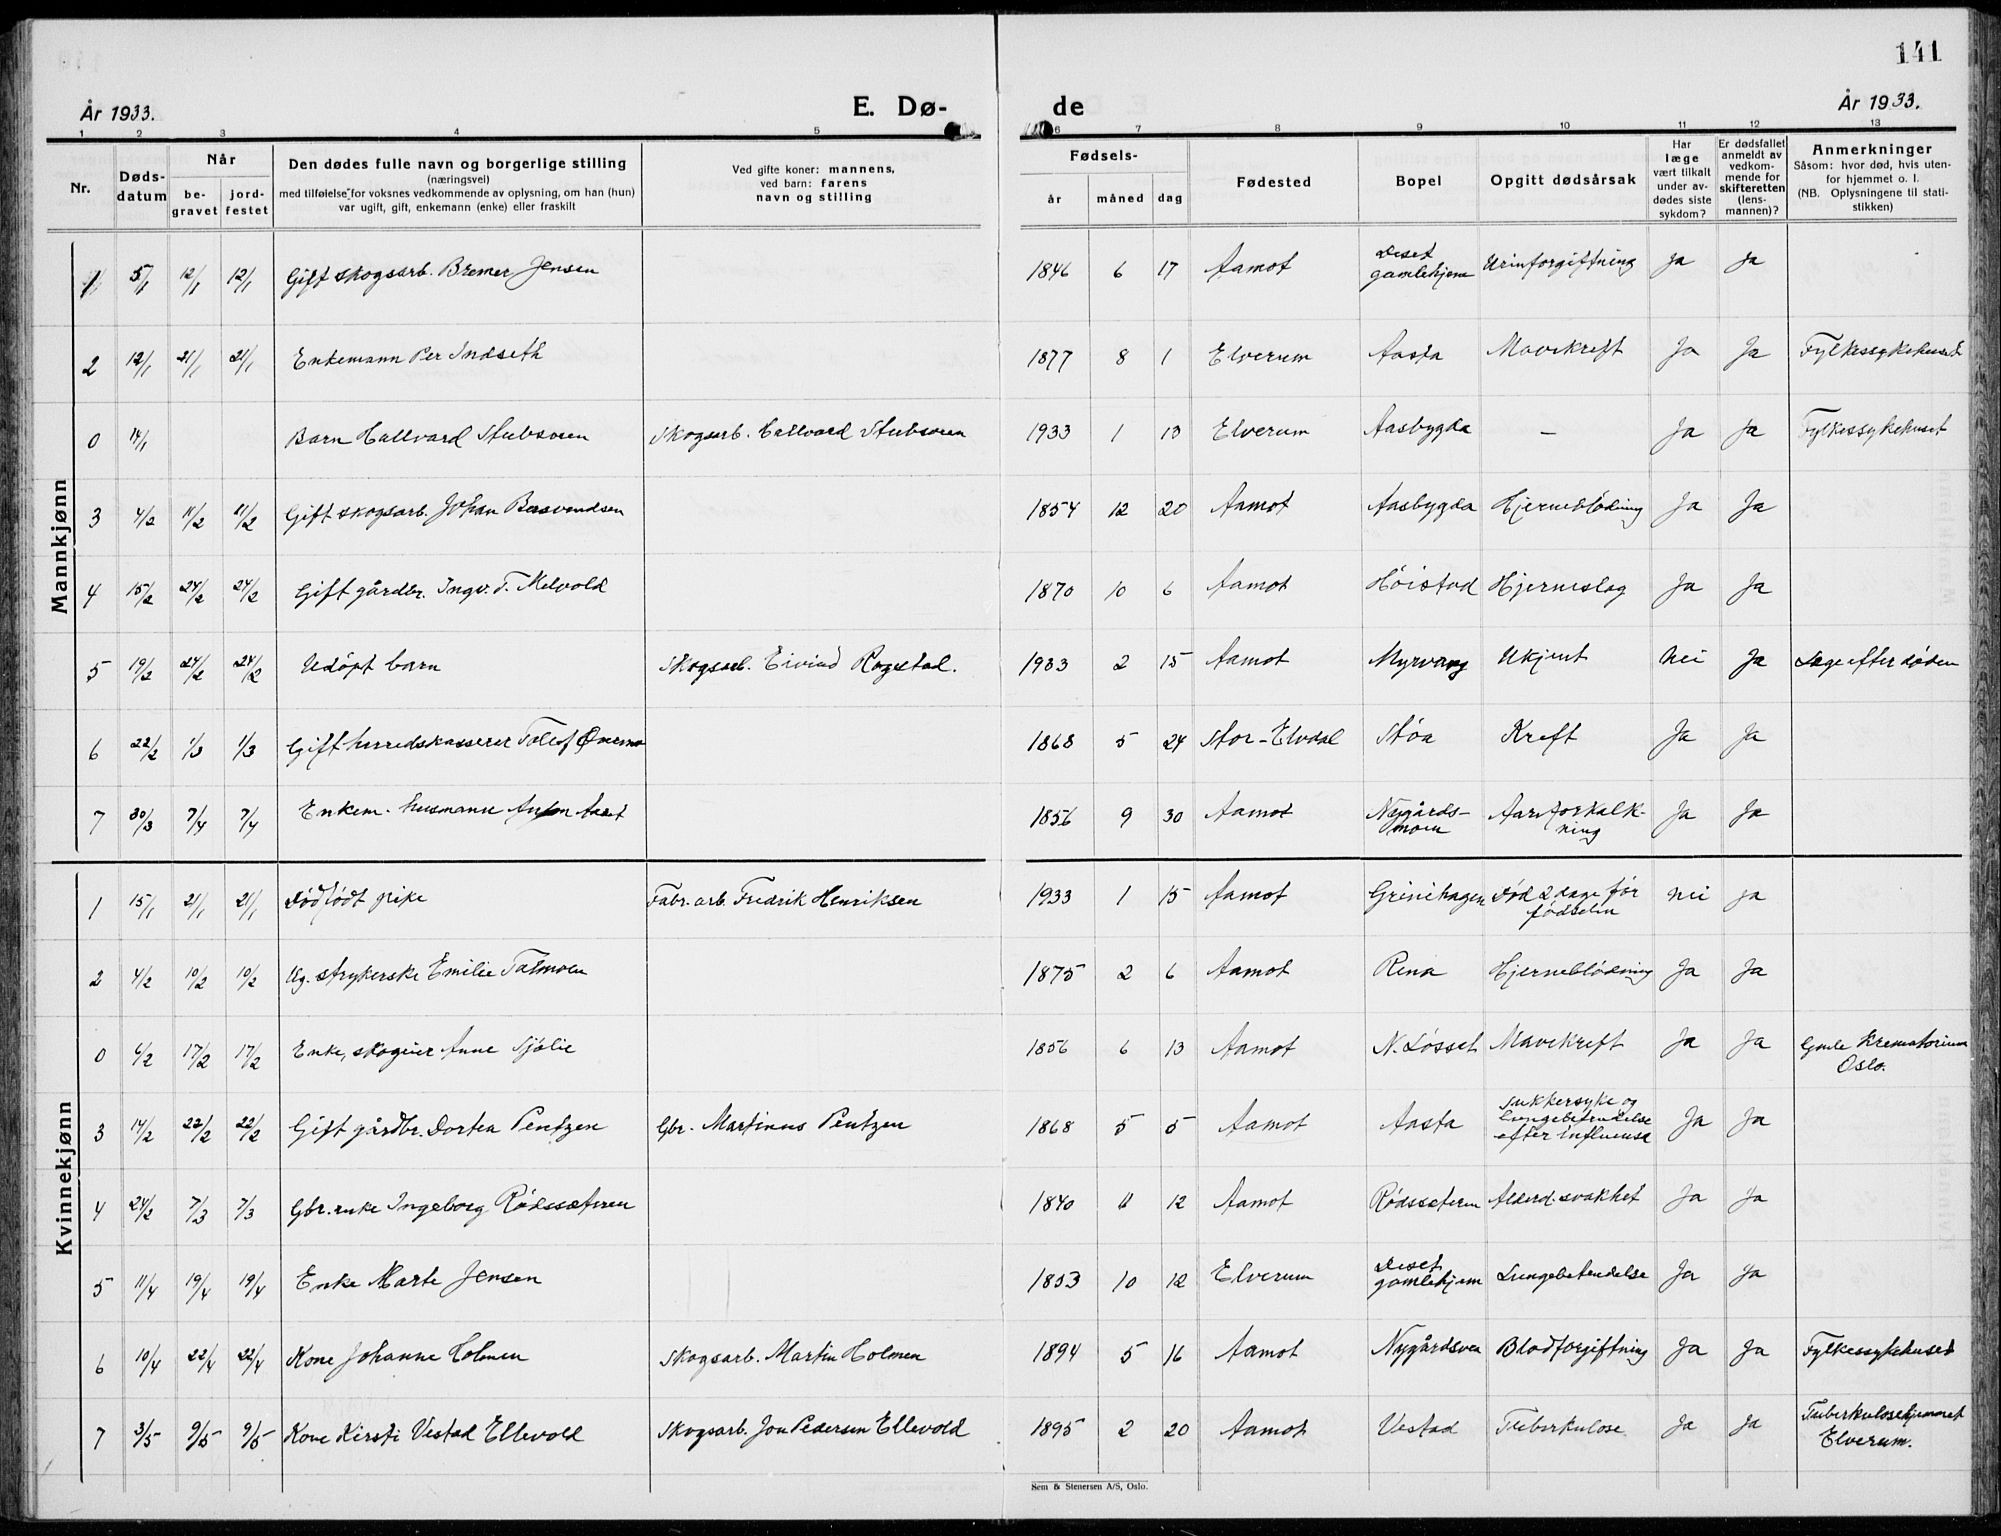 141
År 1933. E. Dø- de År 1933.
1 2 3 4 5 6 7 8 9 10 11 12 13
Nr. Døds-datum Når be-gravet jord-festet
Den dødes fulle navn og borgerlige stilling
(næringsvei)
med tilføielse, for voksnes vedkommende av oplysning, om han (hun)
var ugift, gift, enkemann (enke) eller fraskilt
Ved gifte koner: mannens,
ved barn: farens
navn og stilling
Fødsels- år måned dag
Fødested
Bopel
Opgitt dødsårsak
Har læge vært tilkalt under av-dødes siste sykdom?
Er dødsfallet anmeldt av vedkom-mende for skifteretten (lens-mannen)?
Anmerkninger
Såsom: hvor død, hvis uten-for hjemmet o. l.
(NB. Oplysningene til stati-stikken)
Mannkjønn
1 5/1 12/1 12/1 Gift skogsarb. Bremer Jensen 1846 6 17 Aamot Deset gamlehjem Urinforgiftning Ja Ja
2 12/1 21/1 21/1 Enkemann Per Indseth 1877 8 1 Elverum Aasta Mavekreft Ja Ja Fylkessykehuset
0 14/1 Barn Hallvard Stubsveen Skogsarb. Hallvard Stubsveen 1933 1 13 Elverum Aasbygda — Ja Ja Fylkessykehuset
3 4/2 11/2 11/2 Gift skogsarb. Johan Bersvendsen 1854 12 20 Aamot Aasbygda Hjerneblødning Ja Ja
4 15/2 24/2 24/2 Gift gårdbr. Ingv. T. Melvold 1870 10 6 Aamot Høistad Hjerneslag Ja Ja
5 19/2 24/2 24/2 Udøpt barn Skogsarb. Eivind Rogstad. 1933 2 15 Aamot Myrvang Ukjent Nei Ja Læge efter døden
6 22/2 1/3 1/3 Gift herredskasserer Tollef Øvermo 1868 5 24 Stor-Elvdal Støa Kreft Ja Ja
7 30/3 7/4 7/4 Enkem. husmann Anton Aaset 1856 9 30 Aamot Nygårds-moen Aareforkalk-ning Ja Ja
Kvinnekjønn
1 15/1 21/1 21/1 Dødfødt pike Fabr. arb. Fredrik Henriksen 1933 1 15 Aamot Grinihagen Død 2 dage før fødselen Nei Ja
2 4/2 10/2 10/2 Ug. strykerske Emilie Talmoen 1875 2 6 Aamot Rena Hjerneblødning Ja Ja
0 6/2 17/2 17/2 Enke, skogeier Anne Sjølie 1856 6 13 Aamot N. Løsset Mavekreft Ja Ja Gmle Krematorium Oslo.
3 14/2 22/2 22/2 Gift gårdbr. Dortea Pentzen Gbr. Martinus Pentzen 1868 5 5 Aamot Aasta Sukkersyke og lungebetendelse efter influensa Ja Ja
4 24/2 7/3 7/3 Gbr. enke Ingeborg Rødssæteren 1840 11 12 Aamot Rødssæteren Alderd. svakhet Ja Ja
5 11/4 19/4 19/4 Enke Marte Jensen 1853 10 12 Elverum Deset gamlehjem Lungebetendelse Ja Ja
6 10/4 22/4 22/4 Kone Johanne Holmen Skogsarb. Martin Holmen 1894 5 16 Aamot Nygårdsven Blodforgiftning Ja Ja Fylkessykehuset
7 3/5 9/5 9/5 Kone Kirsti Vestad Ellevold Skogsarb. Jon Pedersen Ellevold 1895 2 20 Aamot Vestad Tuberkulose Ja Ja Tuberkulosehjemmet Elverum.
Sem & Stenersen A/S, Oslo.